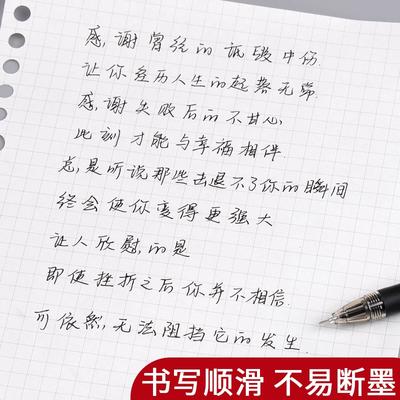 感谢曾经的诋毁中伤
让你经历人生的起落无常
感谢失败后的不甘心
此刻才能与幸福相伴
总是听说那些击退不了你的瞬间
终会使你变得更强大
让人欣慰的是
即使挫折之后你并不相信
可依然无法阻挡它的发生
书写顺滑 不易断墨